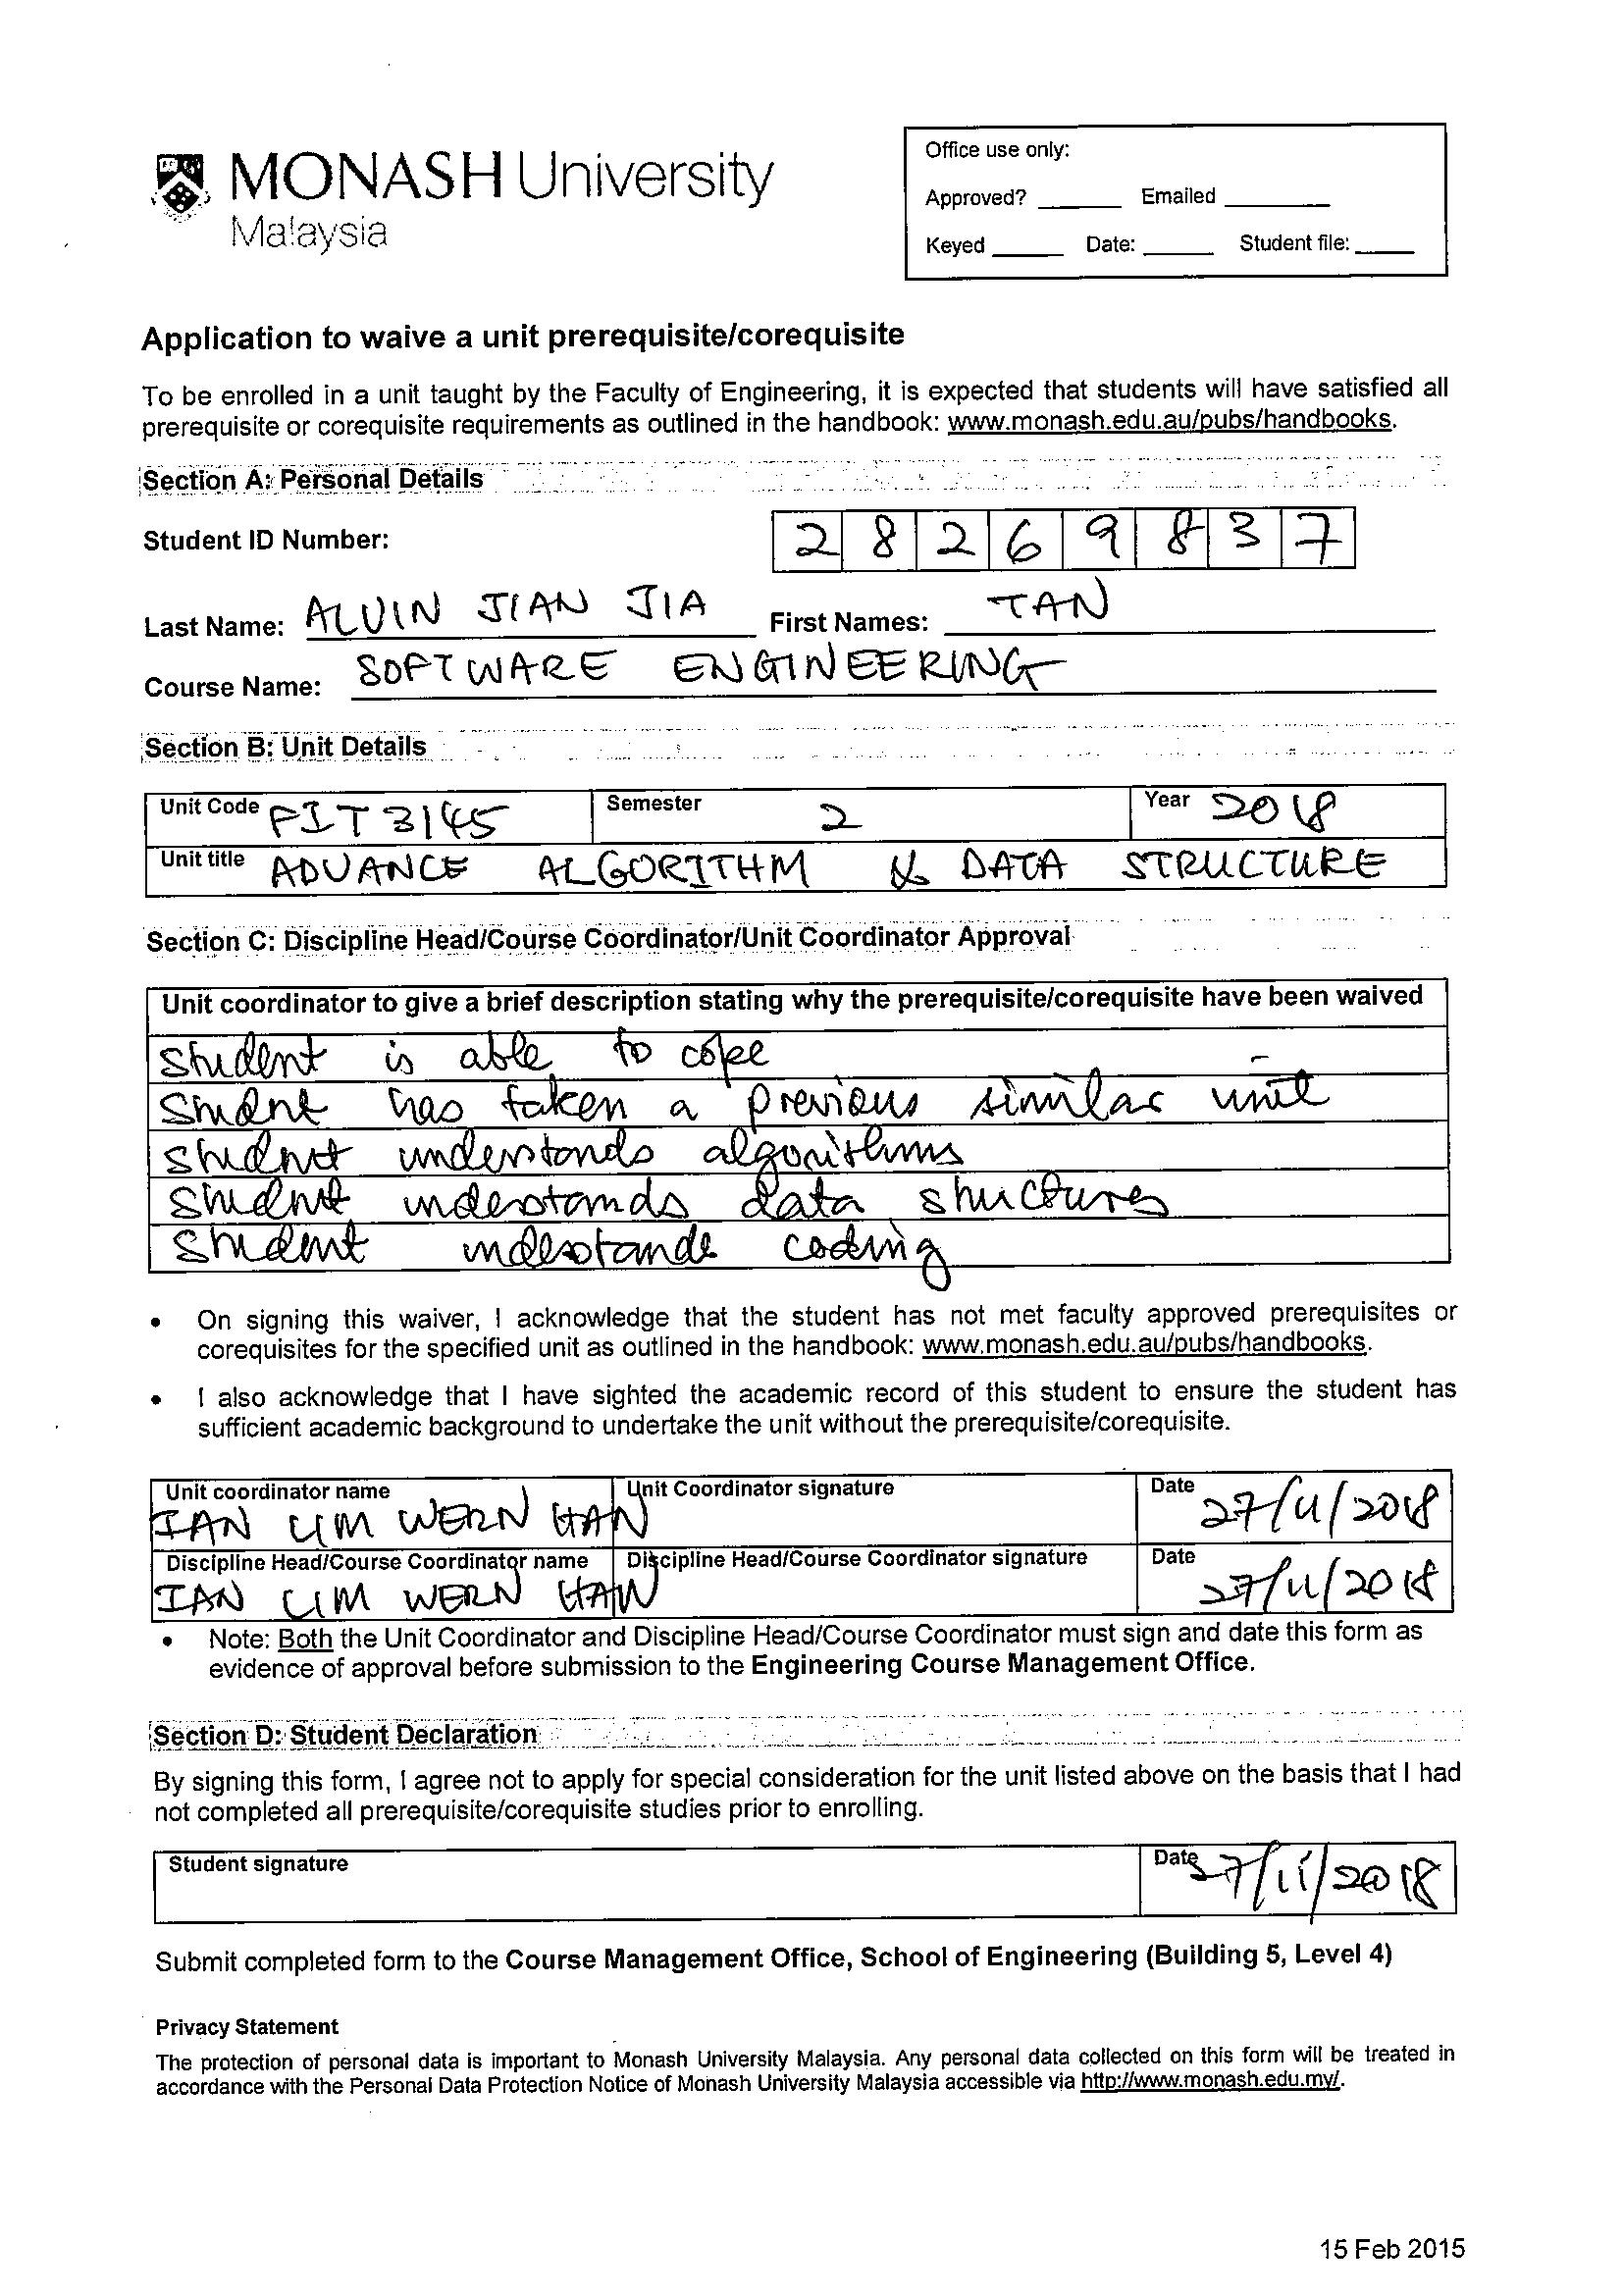 MONASH University
Malaysia
Office use only:
Approved? ______ Emailed ______
Keyed ______ Date: ______ Student file: ______
Application to waive a unit prerequisite/corequisite
To be enrolled in a unit taught by the Faculty of Engineering, it is expected that students will have satisfied all
prerequisite or corequisite requirements as outlined in the handbook: www.monash.edu.au/pubs/handbooks.
Section A: Personal Details
Student ID Number: 2 8 2 6 9 8 3 7
Last Name: ALVIN JIAN JIA First Names: TAN
Course Name: SOFTWARE ENGINEERING
Section B: Unit Details
Unit Code FIT 3145 Semester 2 Year 2018
Unit title ADVANCE ALGORITHM & DATA STRUCTURE
Section C: Discipline Head/Course Coordinator/Unit Coordinator Approval
Unit coordinator to give a brief description stating why the prerequisite/corequisite have been waived
student is able to cope
student has taken a previous similar unit
student understands algorithms
student understands data structures
student understands coding
• On signing this waiver, I acknowledge that the student has not met faculty approved prerequisites or
corequisites for the specified unit as outlined in the handbook: www.monash.edu.au/pubs/handbooks.
• I also acknowledge that I have sighted the academic record of this student to ensure the student has
sufficient academic background to undertake the unit without the prerequisite/corequisite.
Unit coordinator name Unit Coordinator signature Date
IAN LIM WERN HAN 27/11/2018
Discipline Head/Course Coordinator name Discipline Head/Course Coordinator signature Date
IAN LIM WERN HAN 27/11/2018
• Note: Both the Unit Coordinator and Discipline Head/Course Coordinator must sign and date this form as
evidence of approval before submission to the Engineering Course Management Office.
Section D: Student Declaration
By signing this form, I agree not to apply for special consideration for the unit listed above on the basis that I had
not completed all prerequisite/corequisite studies prior to enrolling.
Student signature Date 27/11/2018
Submit completed form to the Course Management Office, School of Engineering (Building 5, Level 4)
Privacy Statement
The protection of personal data is important to Monash University Malaysia. Any personal data collected on this form will be treated in
accordance with the Personal Data Protection Notice of Monash University Malaysia accessible via http://www.monash.edu.my/.
15 Feb 2015